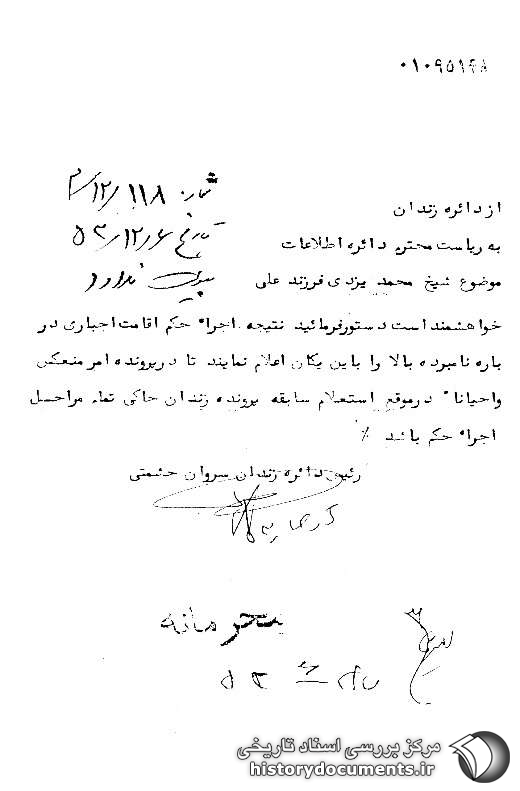 ۰۱۰۹۵۱۴۸
شماره ۲/۱۲/۱۱۸
از دائره زندان
تاریخ ۵۳/۱۲/۶
به ریاست محترم دائره اطلاعات
پیوست ندارد
موضوع شیخ محمد یزدی فرزند علی
خواهشمند است دستور فرمائید نتیجه اجراء حکم اقامت اجباری در
باره نامبرده بالا را باین یکان اعلام نمایند تا در پرونده امر منعکس
واحیانا" درموقع استعلام سابقه پرونده زندان حاکی تمام مراحل
اجراء حکم باشد ٪
رئیس دائره زندان سروان حشمتی
محرمانه
مرکز بررسی اسناد تاریخی
historydocuments.ir